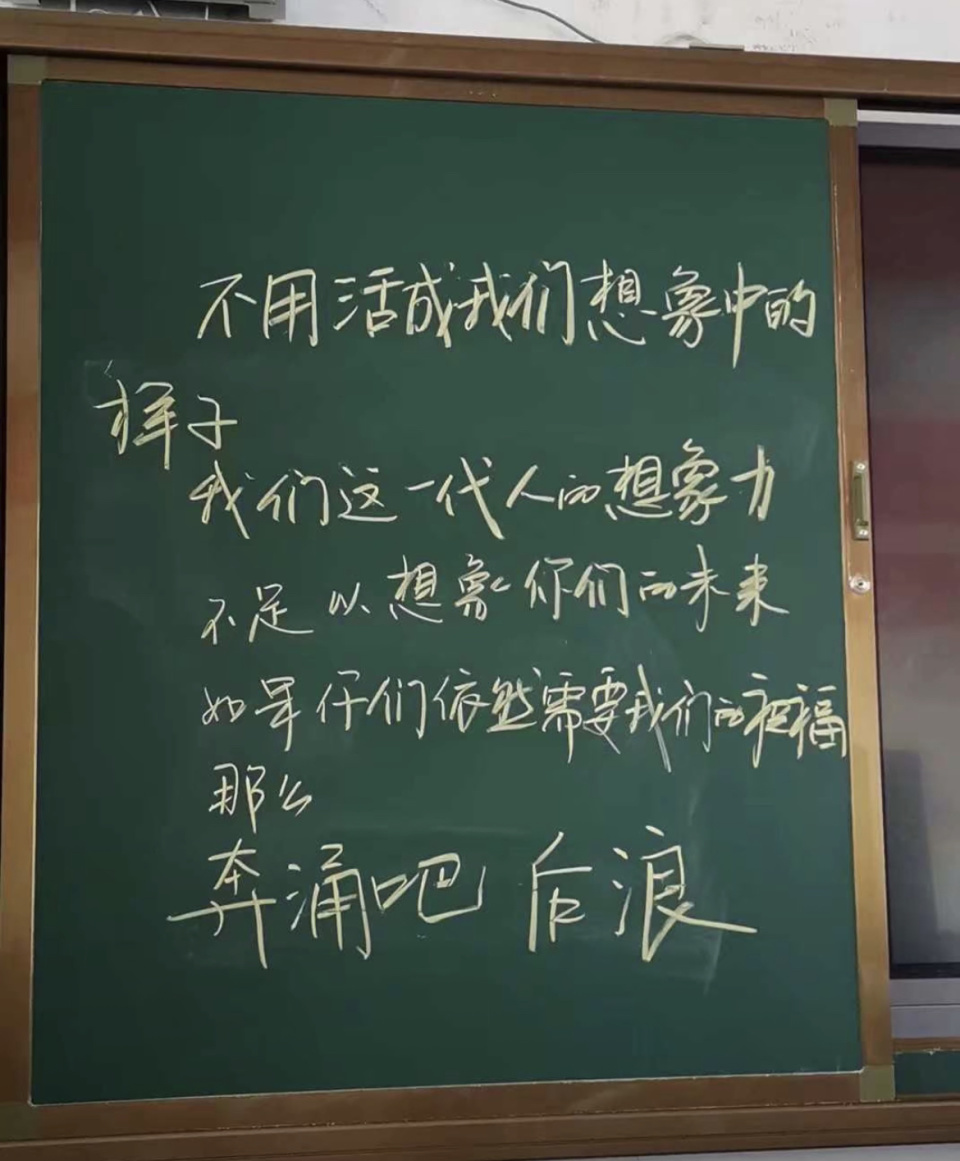 不用活成我们想象中的
样子
我们这一代人的想象力
不足以想象你们的未来
如果你们依然需要我们的祝福
那么
奔涌吧 后浪